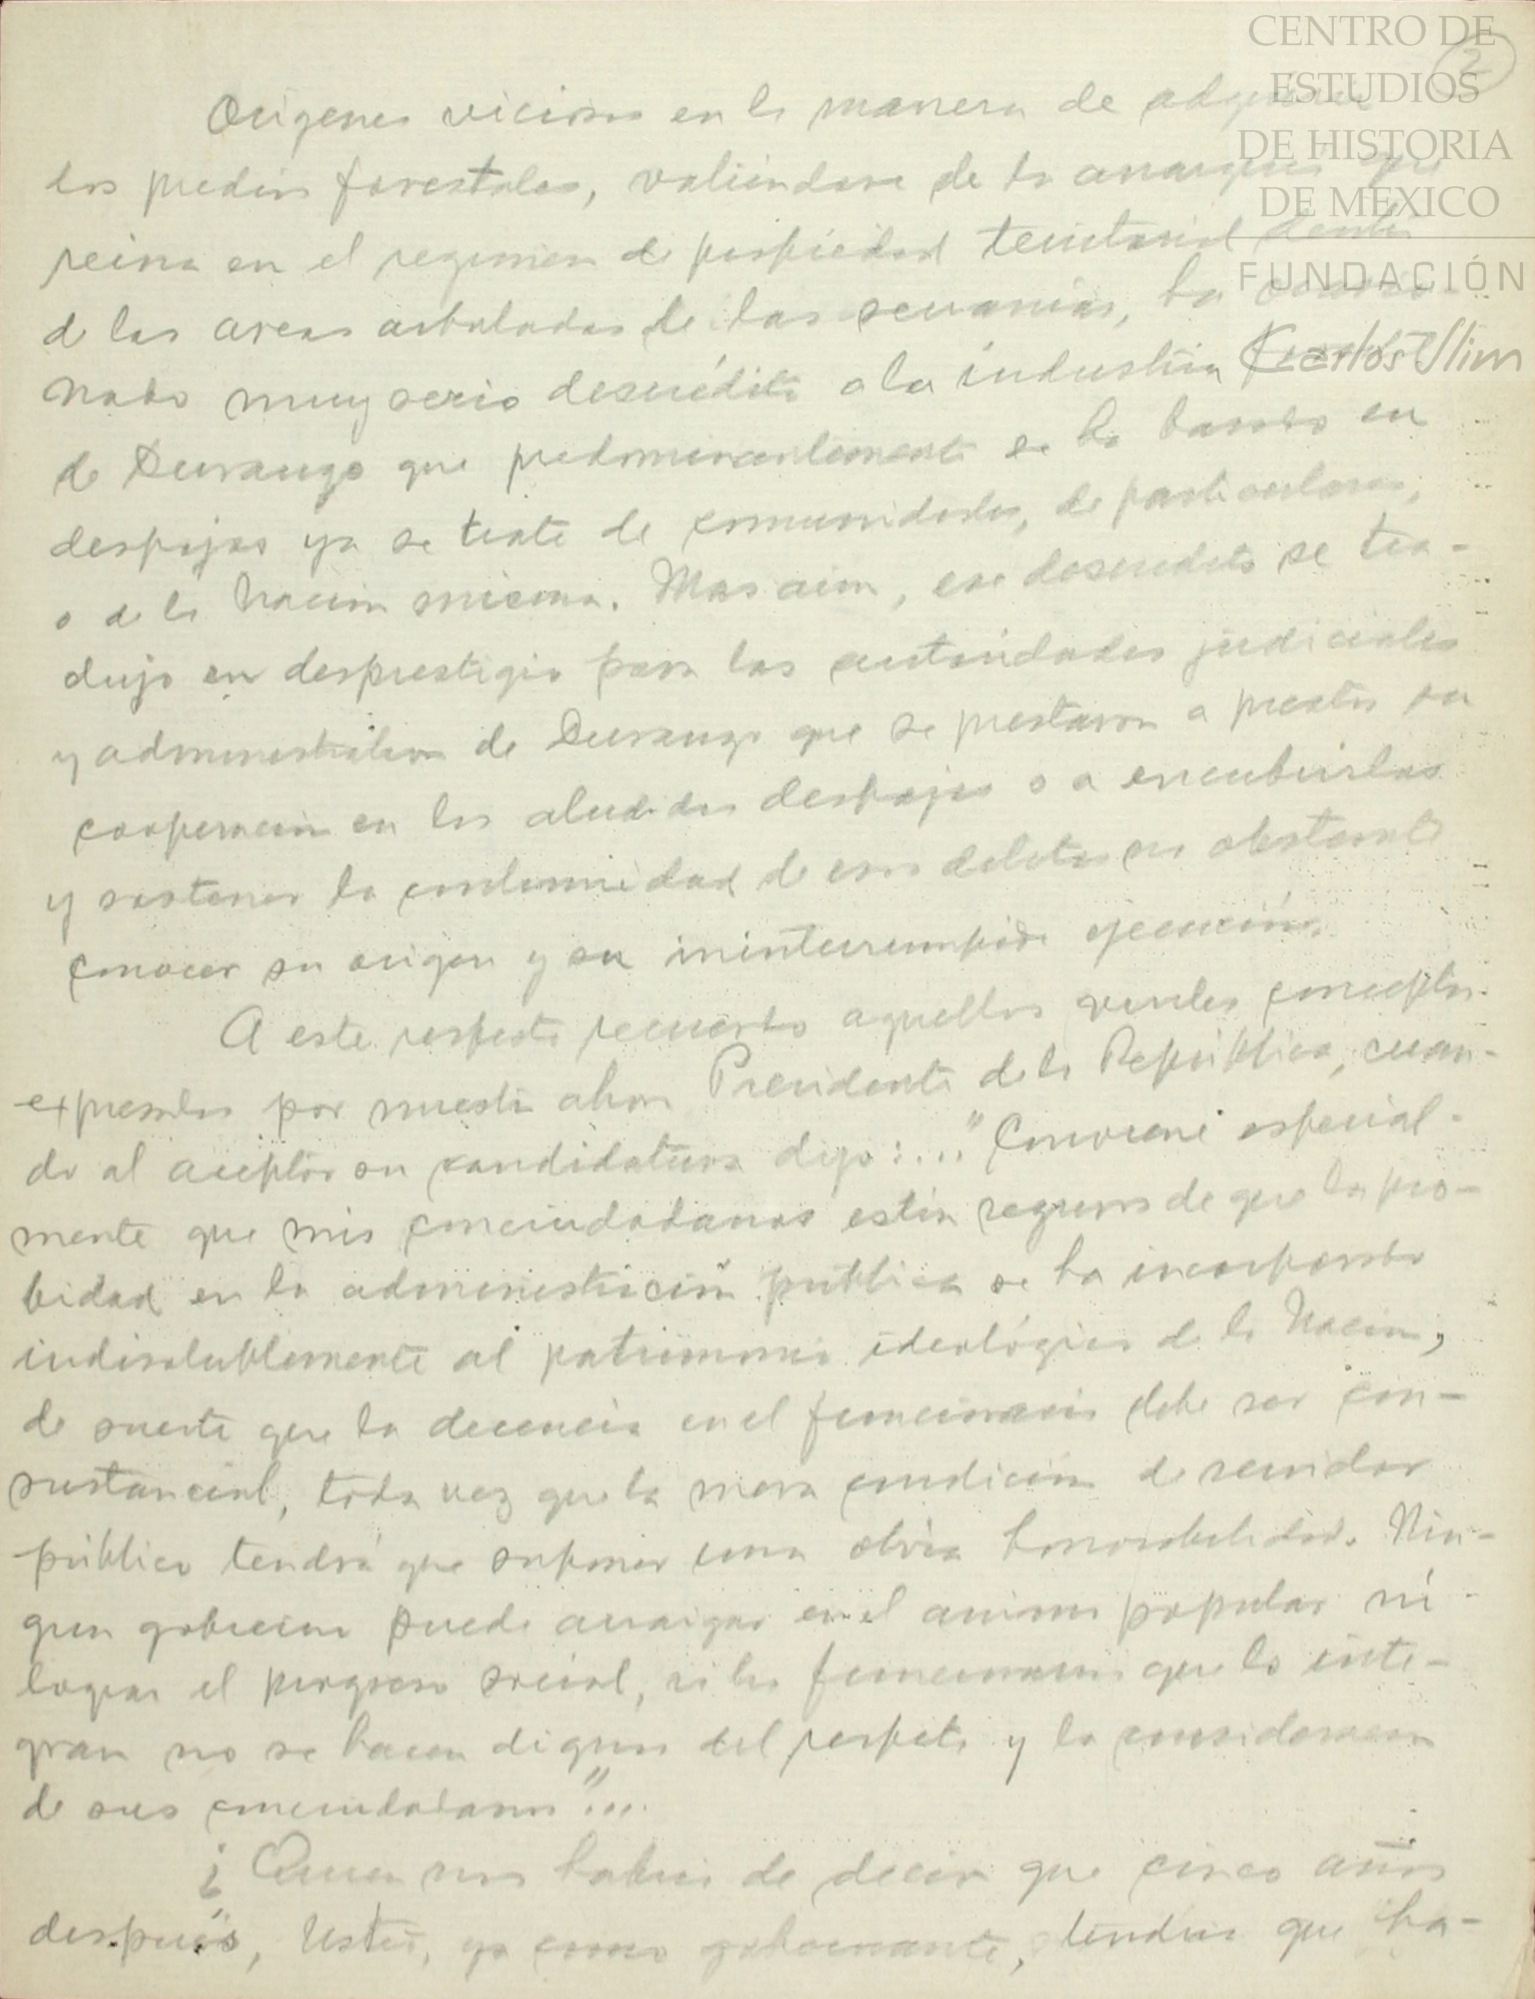 CENTRO DE
ESTUDIOS
DE HISTORIA
DE MÉXICO
FUNDACIÓN
Carlos Slim
2
Origenes viciosos en la manera de adquirir
los predios forestales, valiéndose de la anarquia que
reina en el regimen de propiedad territorial dentro
de las areas arboladas de las serranias, ha ocasio-
nado muy serio descrédito a la industria
de Durango que predominantemente se ha basado en
despojos ya se trate de comunidades, de particulares,
o de la Nacion misma. Mas aún, ese descredito se tra-
dujo en desprestigio para las autoridades judiciales
y administrativas de Durango que se prestaron a prestar su
cooperacion en los aludidos despojos o a encubrirlos
y sostener la continuidad de esos delitos no obstante
conocer su origen y su ininterrumpida ejecución.
A este respecto recuerdo aquellos viriles conceptos
expresados por nuestro ahora Presidente de la República, cuan-
do al aceptar su candidatura dijo:..." Conviene especial-
mente que mis conciudadanos estén seguros de que la pro-
bidad en la administración pública se ha incorporado
indisolublemente al patrimonio ideológico de la Nacion,
de suerte que la decencia en el funcionario debe ser con-
sustancial, toda vez que la mera condición de servidor
público tendrá que suponer una obvia honorabilidad. Nin-
gun gobierno puede arraigar en el animo popular ni
lograr el progreso social, si los funcionarios que lo inte-
gran no se hacen dignos del respeto y la consideracion
de sus conciudadanos"...
¡ Quien nos habria de decir que cinco años
después, Usted, ya como gobernante, tendria que ha-